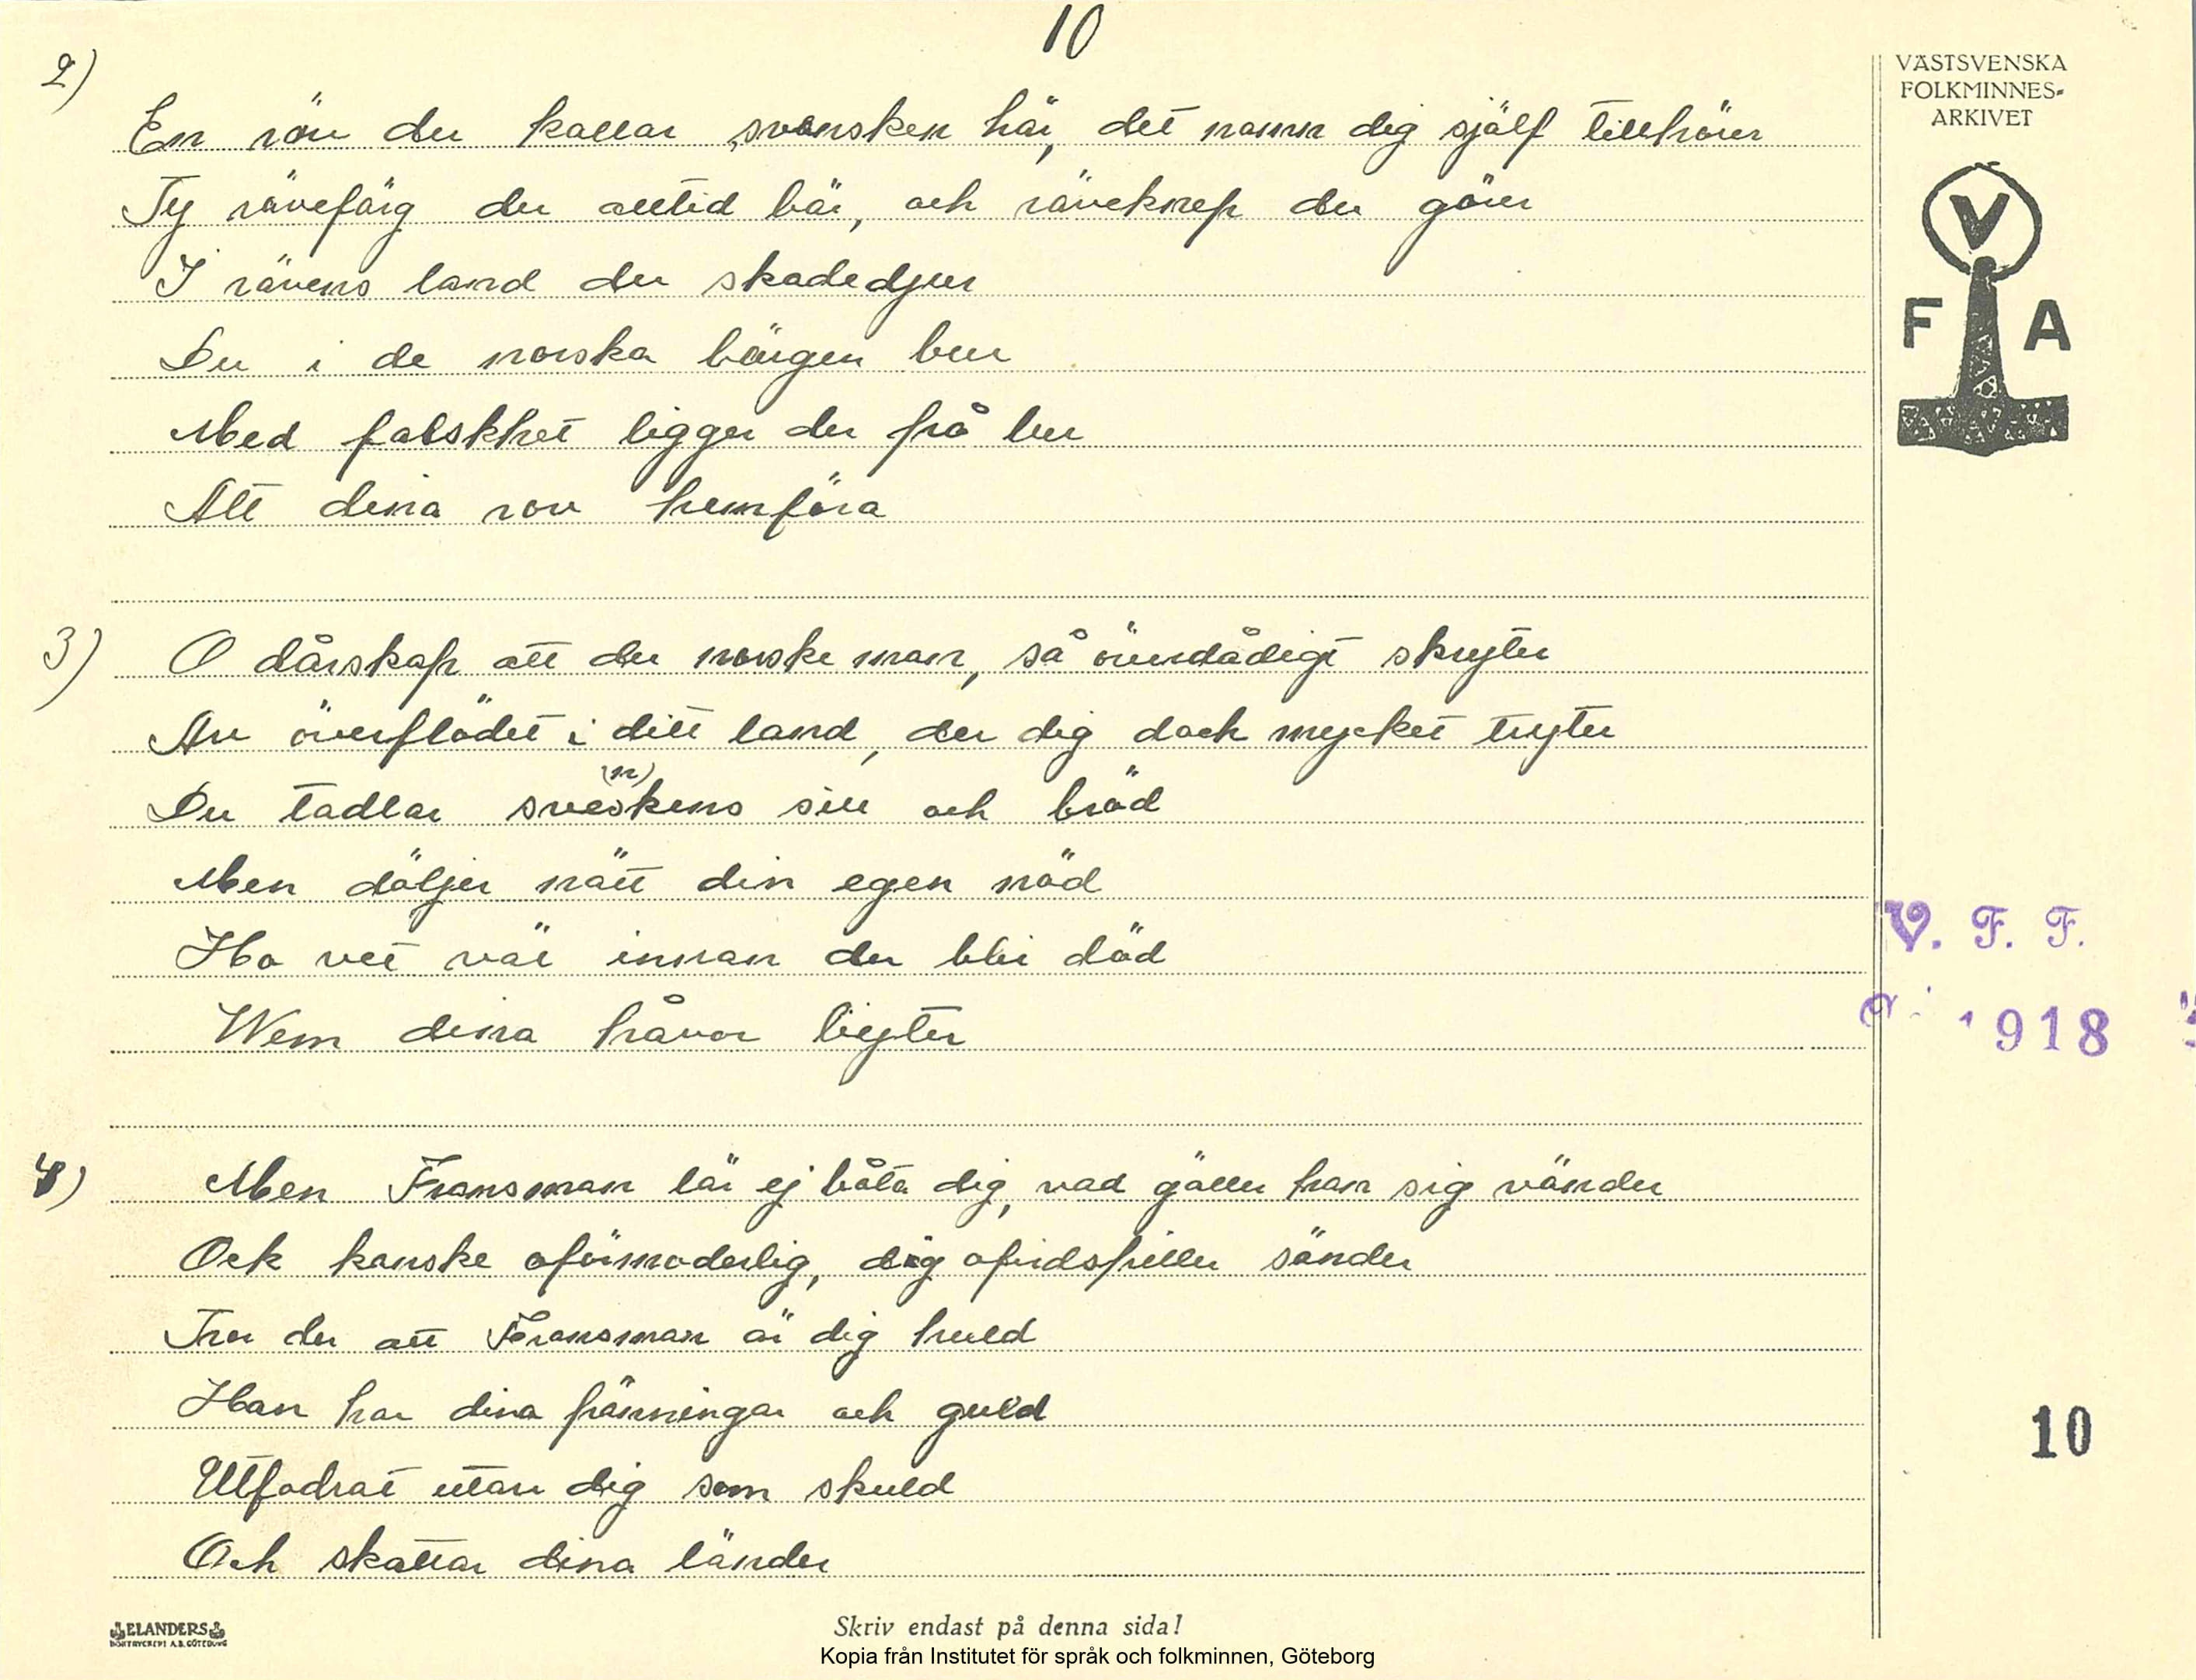 10
2)
En räv du kallar svensken här, det namn dig själf tillhörer
Ty rävefärg du alltid bär, och räveknep du görer
I rävens land du skadedjur
Du i de norska bärgen bur
Med falskhet ligger du på lur
Att dina rov hemföra
3) O dårskap att du norske man, så överdådigt skryter
Av överflödet i ditt land, der dig dock mycket tryter
(n)
Du tadlar sveskens sill och bröd
Men döljer nätt din egen nöd
Ho vet väl innan du blir död
Wem dina håvor byter
4) Men Fransman lär ej båta dig, vad gäller han sig vänder
Ock kanske oförmoderlig, dig spiller sänder
Tror du att Fransman är dig huld
Han har dina pänningar och guld
Utfodrat utav dig som skuld
Och skattar dina länder
VÄSTSVENSKA
FOLKMINNES-
ARKIVET
V
F A
V. F. F.
1918
10
ELANDERS
BOKTRYCKERI A.B. GÖTEBORG
Skriv endast på denna sida!
Kopia från Institutet för språk och folkminnen, Göteborg